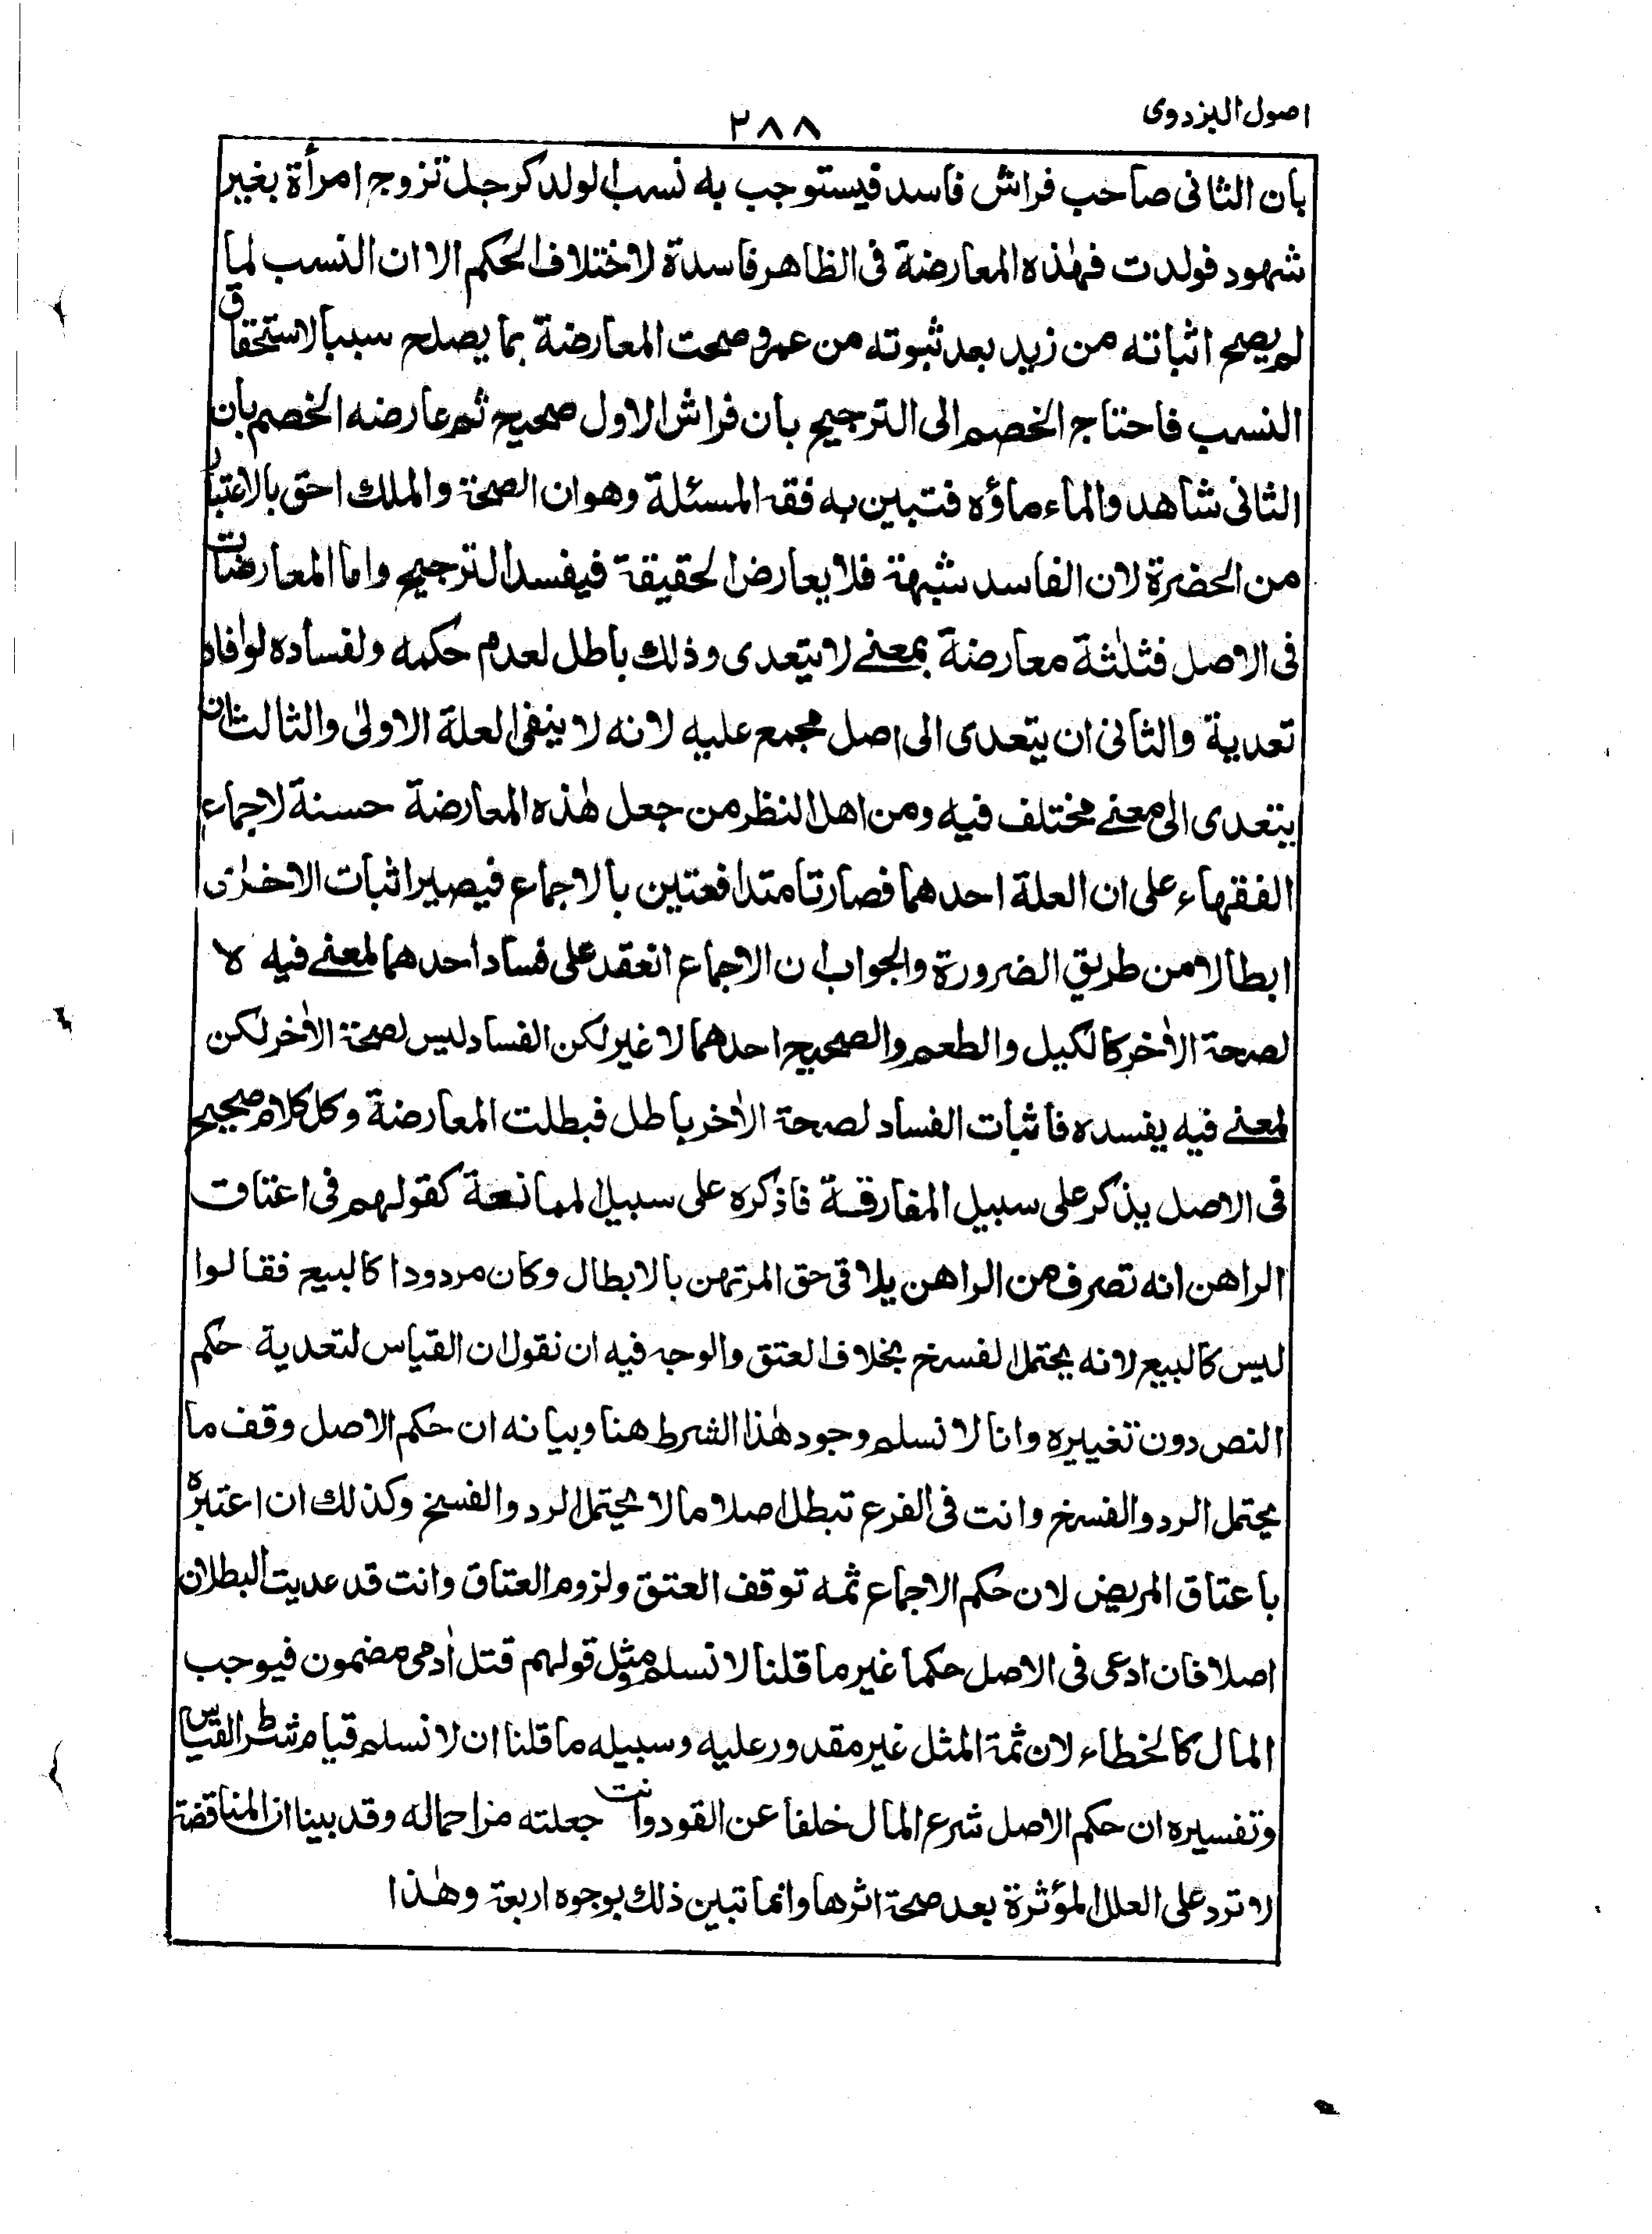 اصول البزدوی
۲۸۸
بان الثانی صاحب فراش فاسد فیستوجب به نسب الولد کرجل تزوج امرأة بغیر
شهود فولدت فهذه المعارضة فی الظاهر فاسدة لاختلاف الحکم الا ان النسب لما
لم یصح اثباته من زید بعد ثبوته من عمرو صحت المعارضة بما یصلح سببا لاستحقاق
النسب فاحتاج الخصم الی الترجیح بان فراش الاول صحیح ثم عارضه الخصم بان
الثانی شاهد والماء ماؤه فتبین به فقه المسئلة وهو ان الصحة والملك احق بالاعتبار
من الحضرة لان الفاسد شبهة فلا یعارض الحقیقة فیفسد الترجیح واما المعارضات
فی الاصل فثلثة معارضة بمعنے لا یتعدی وذلك باطل لعدم حکمه ولفساده لو افاد
تعدیة والثانی ان یتعدی الی اصل مجمع علیه لانه لا ینفی العلة الاولیٰ والثالث ان
یتعدی الی معنے مختلف فیه ومن اهل النظر من جعل هٰذه المعارضة حسنة لاجماع
الفقهاء علی ان العلة احدهما فصارتا متدافعتین بالاجماع فیصیر اثبات الاخرٰی
ابطالا من طریق الضرورة والجواب ان الاجماع انعقد علی فساد احدهما لمعنے فیه لا
لصحة الاٰخر کالکیل والطعم والصحیح احدهما لا غیر لکن الفساد لیس لصحة الاٰخر لکن
لمعنے فیه یفسده فاثبات الفساد لصحة الاٰخر باطل فبطلت المعارضة وکل کلام صحیح
فی الاصل یذکر علی سبیل المفارقة فاذکره علی سبیل الممانعة کقولهم فی اعتاق
الراهن انه تصرف من الراهن یلاقی حق المرتهن بالابطال وکان مردودا کالبیع فقالوا
لیس کالبیع لانه یحتمل الفسخ بخلاف العتق والوجه فیه ان نقول ان القیاس لتعدیة حکم
النص دون تغییره وانا لا نسلم وجود هٰذا الشرط هنا وبیانه ان حکم الاصل وقف ما
یحتمل الرد والفسخ وانت فی الفرع تبطل اصلا ما لا یحتمل الرد والفسخ وکذلك ان اعتبره
باعتاق المریض لان حکم الاجماع ثمه توقف العتق ولزوم العتاق وانت قد عدیت البطلان
اصلا فان ادعی فی الاصل حکما غیر ما قلنا لا نسلم ومثل قولهم قتل اٰدمی مضمون فیوجب
المال کالخطاء لان ثمة المثل غیر مقدور علیه وسبیله ما قلنا ان لا نسلم قیام شرط القیاس
وتفسیره ان حکم الاصل شرع المال خلفا عن القود وانت جعلته مزاحماله وقد بینا ان المناقضة
لا ترد علی العلل المؤثرة بعد صحة اثرها وانما تبین ذلك بوجوه اربعة وهٰذا